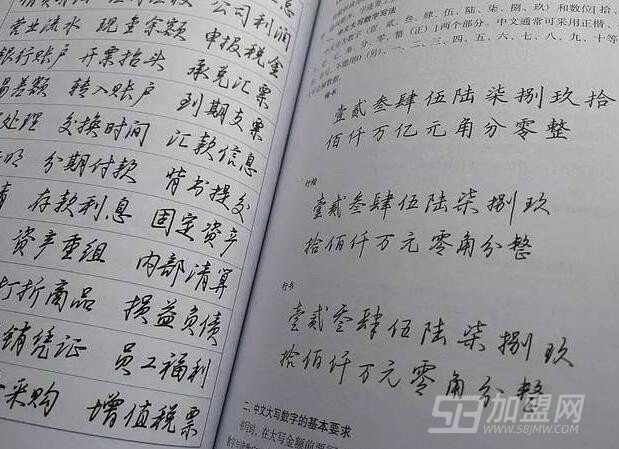 公司利润
营业流水 现金余额 申报税金
银行账户 开票抬头 承兑汇票
差额 转入账户 到期支票
处理 交换时间 汇款信息
分期付款 背书提交
存款利息 固定资产
资产重组 内部清算
打折商品 损益负债
销凭证 员工福利
采购 增值税票
中文大写数字写法
数字(壹、贰、叁、肆、伍、陆、柒、捌、玖)和数位[拾、
分、零、整(正)]两个部分。中文通常可采用正楷、
一、二、三、四、五、六、七、八、九、十等
楷书
壹贰叁肆伍陆柒捌玖拾
佰仟万亿元角分零整
行楷
壹贰叁肆伍陆柒捌玖
拾佰仟万元零角分整
行书
壹贰叁肆伍陆柒捌玖
拾佰仟万元零角分整
二、中文大写数字的基本要求
书写时,在大写金额前要
58加盟网
WWW.58JMW.COM